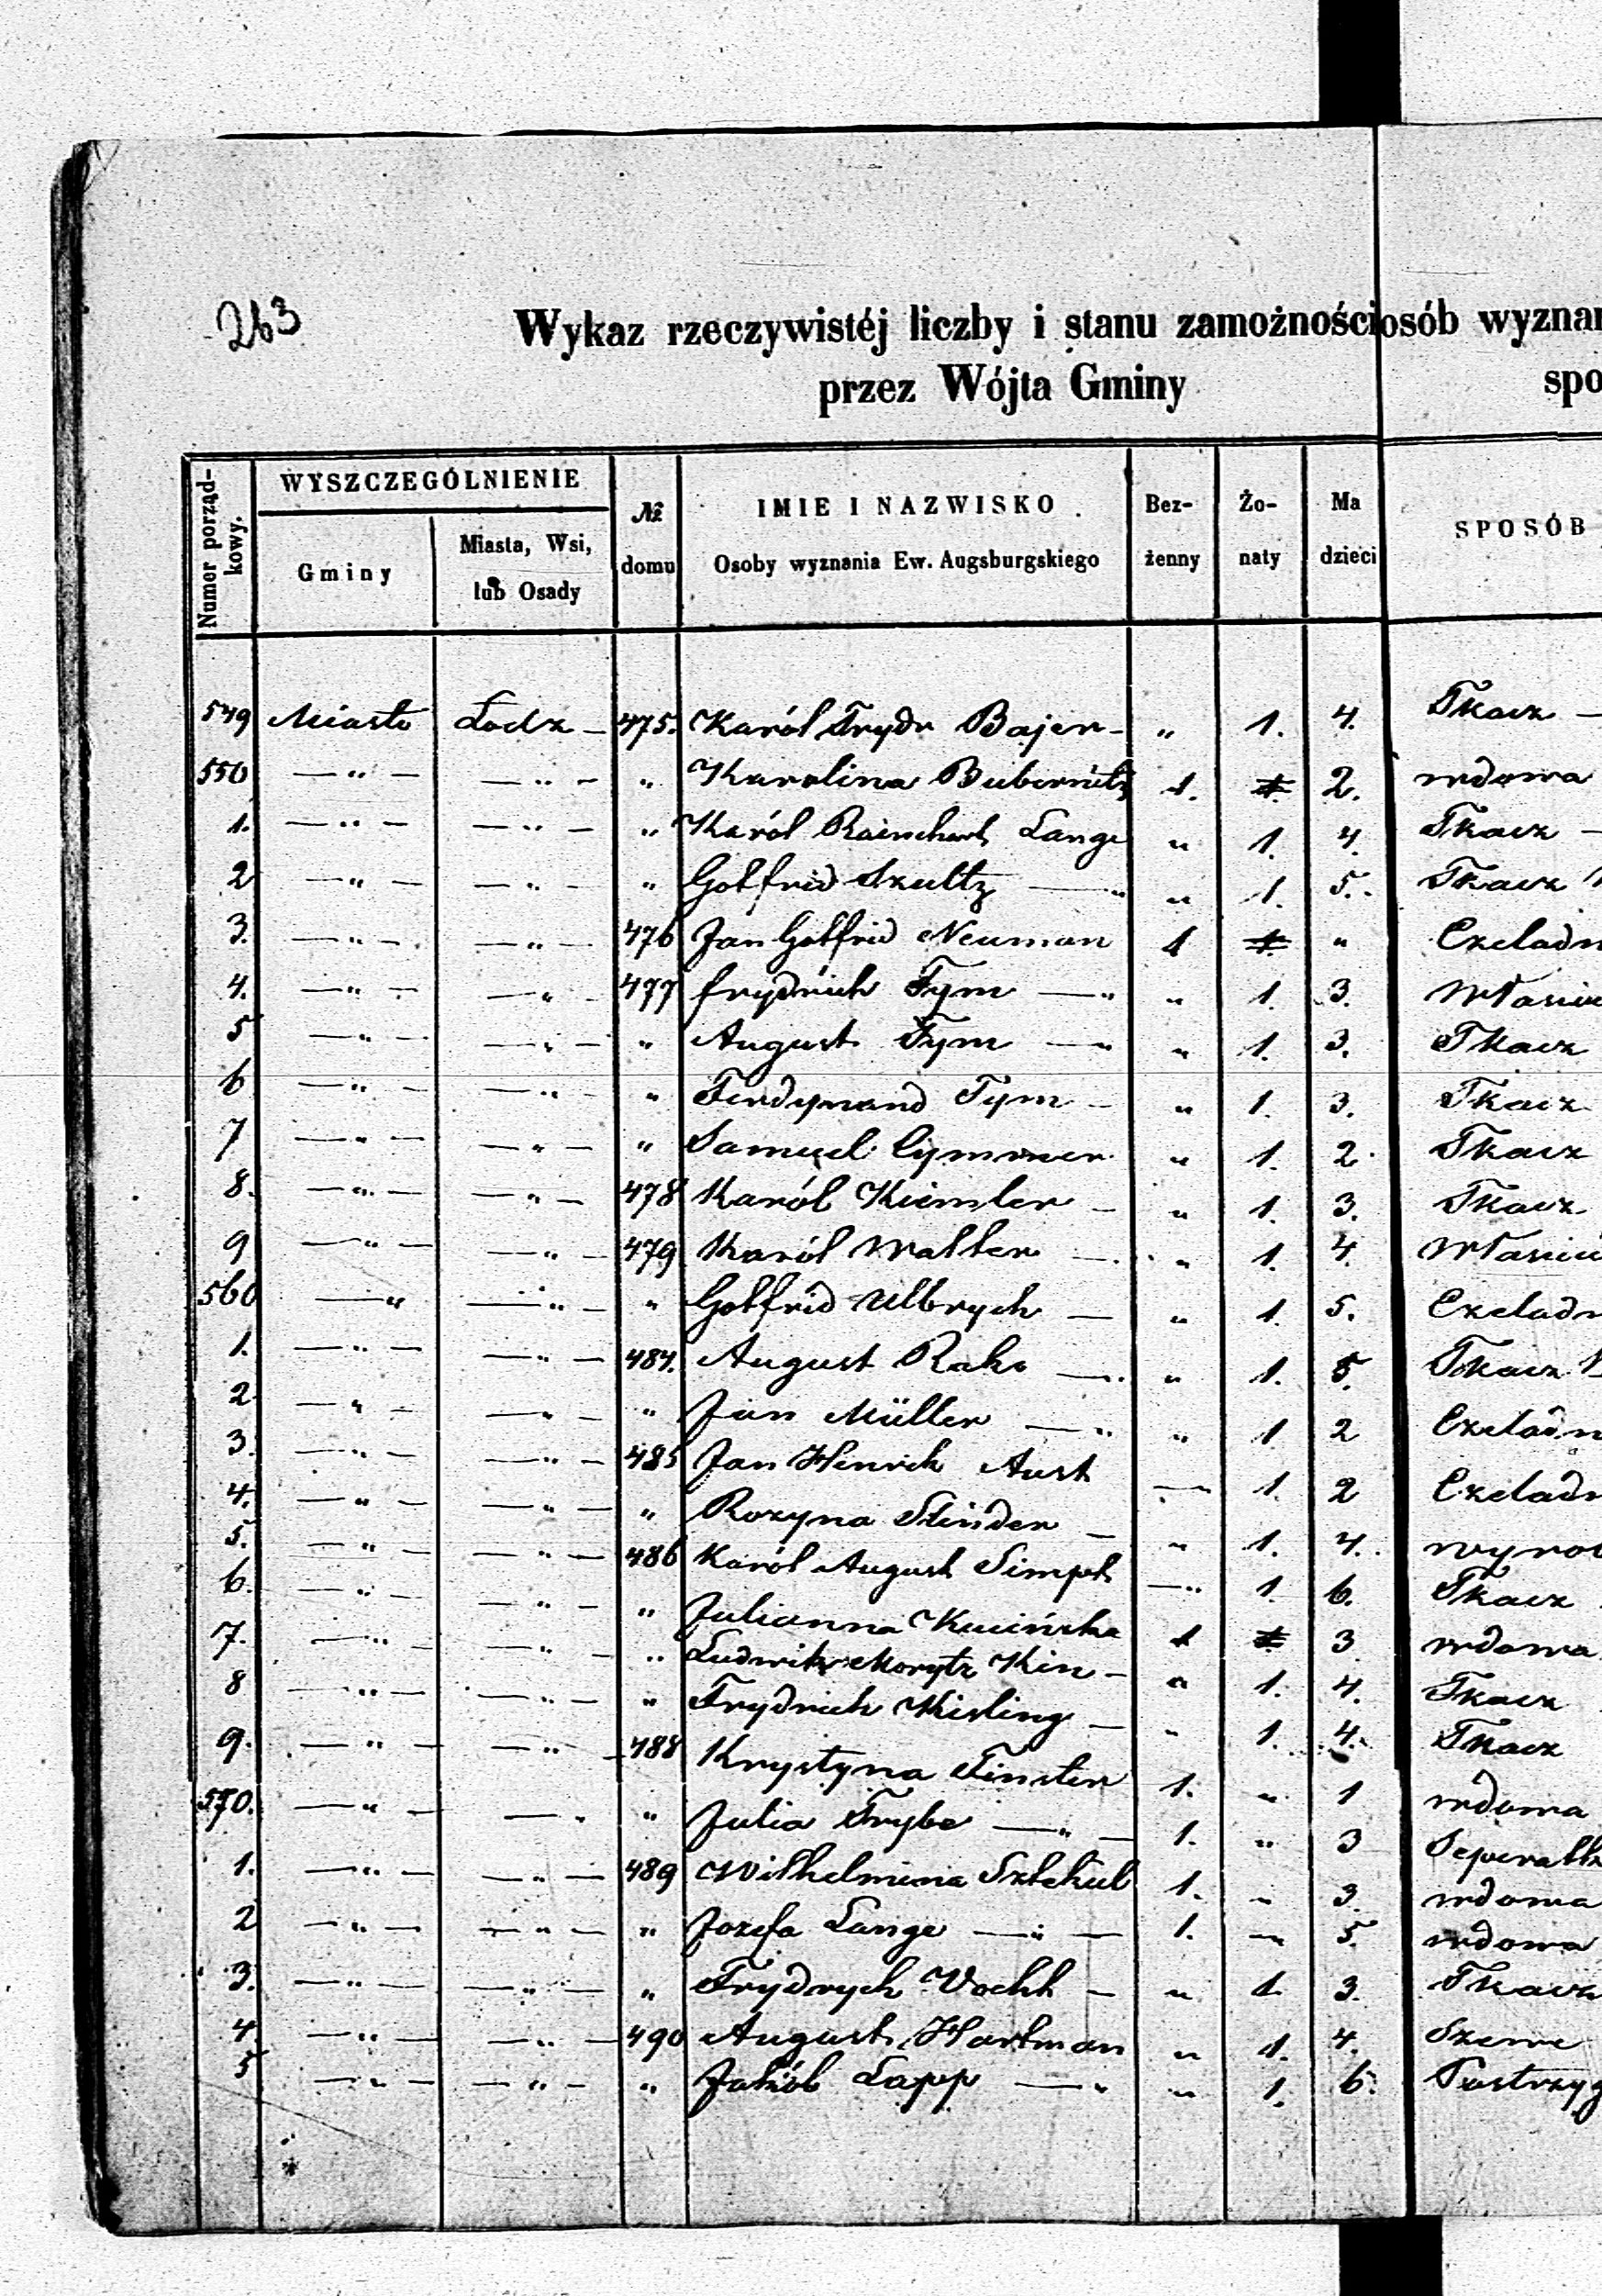 263
Wykaz rzeczywistéj liczby i stanu zamożności osób wyznan
przez Wójta Gminy spo
Numer porządkowy.
WYSZCZEGÓLNIENIE
Gminy
Miasta, Wsi, lub Osady
№ domu
IMIE I NAZWISKO
Osoby wyznania Ew. Augsburgskiego
Bez-żenny
Żo-naty
Ma dzieci
SPOSÓB
549 Miasto Łodz – 475. Karól Frydr Bajer – " 1. 4. Tkacz –
550 — " — — " — " Karolina Bubernitz 1. 2. wdowa
1. — " — — " — " Karól Rainchart Lange " 1. 4. Tkacz –
2 — " — — " — " Gotfrid Szultz — " " 1. 5. Tkacz
3. — " — — " — 476 Jan Gotfrid Neuman 1 " Czeladn
4. — " — — " — 477 frydrich Tym — " " 1. 3. Właści
5 — " — — " — " August Tym — " " 1. 3. Tkacz
6 — " — — " — " Ferdynand Tym — " 1. 3. Tkacz
7 — " — — " — " Samuel Cymmer " 1. 2. Tkacz
8. — " — — " — 478 Karól Kiemler — " 1. 3. Tkacz
9 — " — — " — 479 Karól Walter — " 1. 4. Właści
560 — " — " — " Gotfrid Ulbrych — " 1. 5. Czeladn
1. — " — — " — 484. August Rake — " 1. 5. Tkacz
2 — " — — " — " Jan Müller — " " 1. 2 Czeladn
3. — " — — " — 485 Jan Henrik Aust — " 1. 2 Czeladn
4. — " — — " — " Rozyna Stinder — " 1. 4. wyro
5. — " — — " — 486 Karól August Simpt — " 1. 6. Tkacz
6. — " — — " — " Julianna Kucińska 1 3 wdowa
7. — " — — " — " Ludwik Morytz Kin — " 1. 4. Tkacz
8 — " — — " — " Frydrich Kisling — " 1. 4. Tkacz
9. — " — — " — 488 Krystyna Finster 1. " 1 wdowa
570. — " — — " " Julia Frybe — " — 1. " 3 Seperatk
1. — " — — " — 489 Wilhelmina 1. " 3. wdowa
2 — " — — " — " Jozefa Lange — " — 1. " 5. wdowa
3. — " — — " — " Frydrych Vocht — " 1. 3. Tkacz
4. — " — — " — 490 August Hartman " 1. 4. Szewc
5 — " — — " — " Jakób Lapp — " " 1. 6. Postrzyg